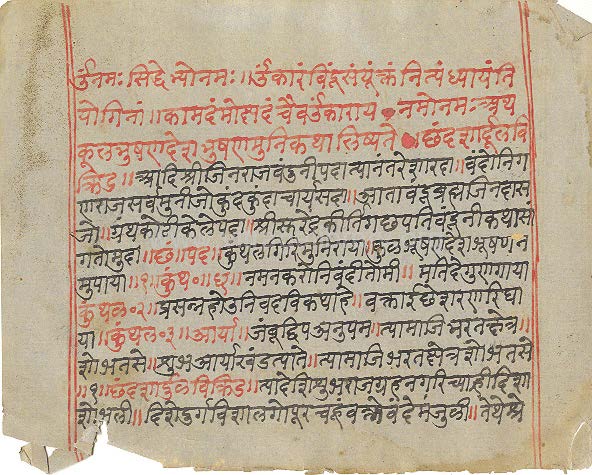 उंनमः सिद्धेभ्योनमः॥उंकारंबिंदूसंयूक्तंनित्यंध्यायंति
योगिनां॥कामदंमोक्षदंचैवउंकाराय नमोनमः अथ
कूलभुषणदेशभुषणमुनिकथालिष्यते छंदशार्दूलवि
क्रिड॥आदिश्रीजिनराजवंडुनीपदात्यानंतरेशारदा॥वंदोनिग
णराजसर्वमुनीजोकुंदकुंदाचार्यसदा॥ज्ञाताबडुब्रह्मजिनदास
जो॥ग्रंथकोटीकेलेपदा॥श्रीसूरेंद्रकीर्तिगछपतिवंदूनीकथासां
गतोमुदा॥छं॥पद॥कुंथलगिरिमुनिराया॥कुलभूषणदेशभूषणन
मुपाया॥१॥कुंथ०॥धृ॥नमनकरोनिवंदीतोमी॥मतिदेगुणगाया
कुंथल०२॥प्रसन्नहोउनिवदविकथाहे॥वक्ताईछेशरणरिघा
या॥कुंथल०३॥आर्या॥जंबूद्विपअनुपम॥त्यामाजिभरतक्षेत्र
शोभतसे॥सुभआर्याखंडत्यातें॥त्यामाजिभरतक्षेत्रशोभतसे
॥१॥छंदशार्दुलविक्रिड॥त्यादेशिसुभराजग्रहनगरिचाहीदिशा
शोभली॥दिशेदुर्गविशालगोपूर मंजुळी॥तेथेश्रे